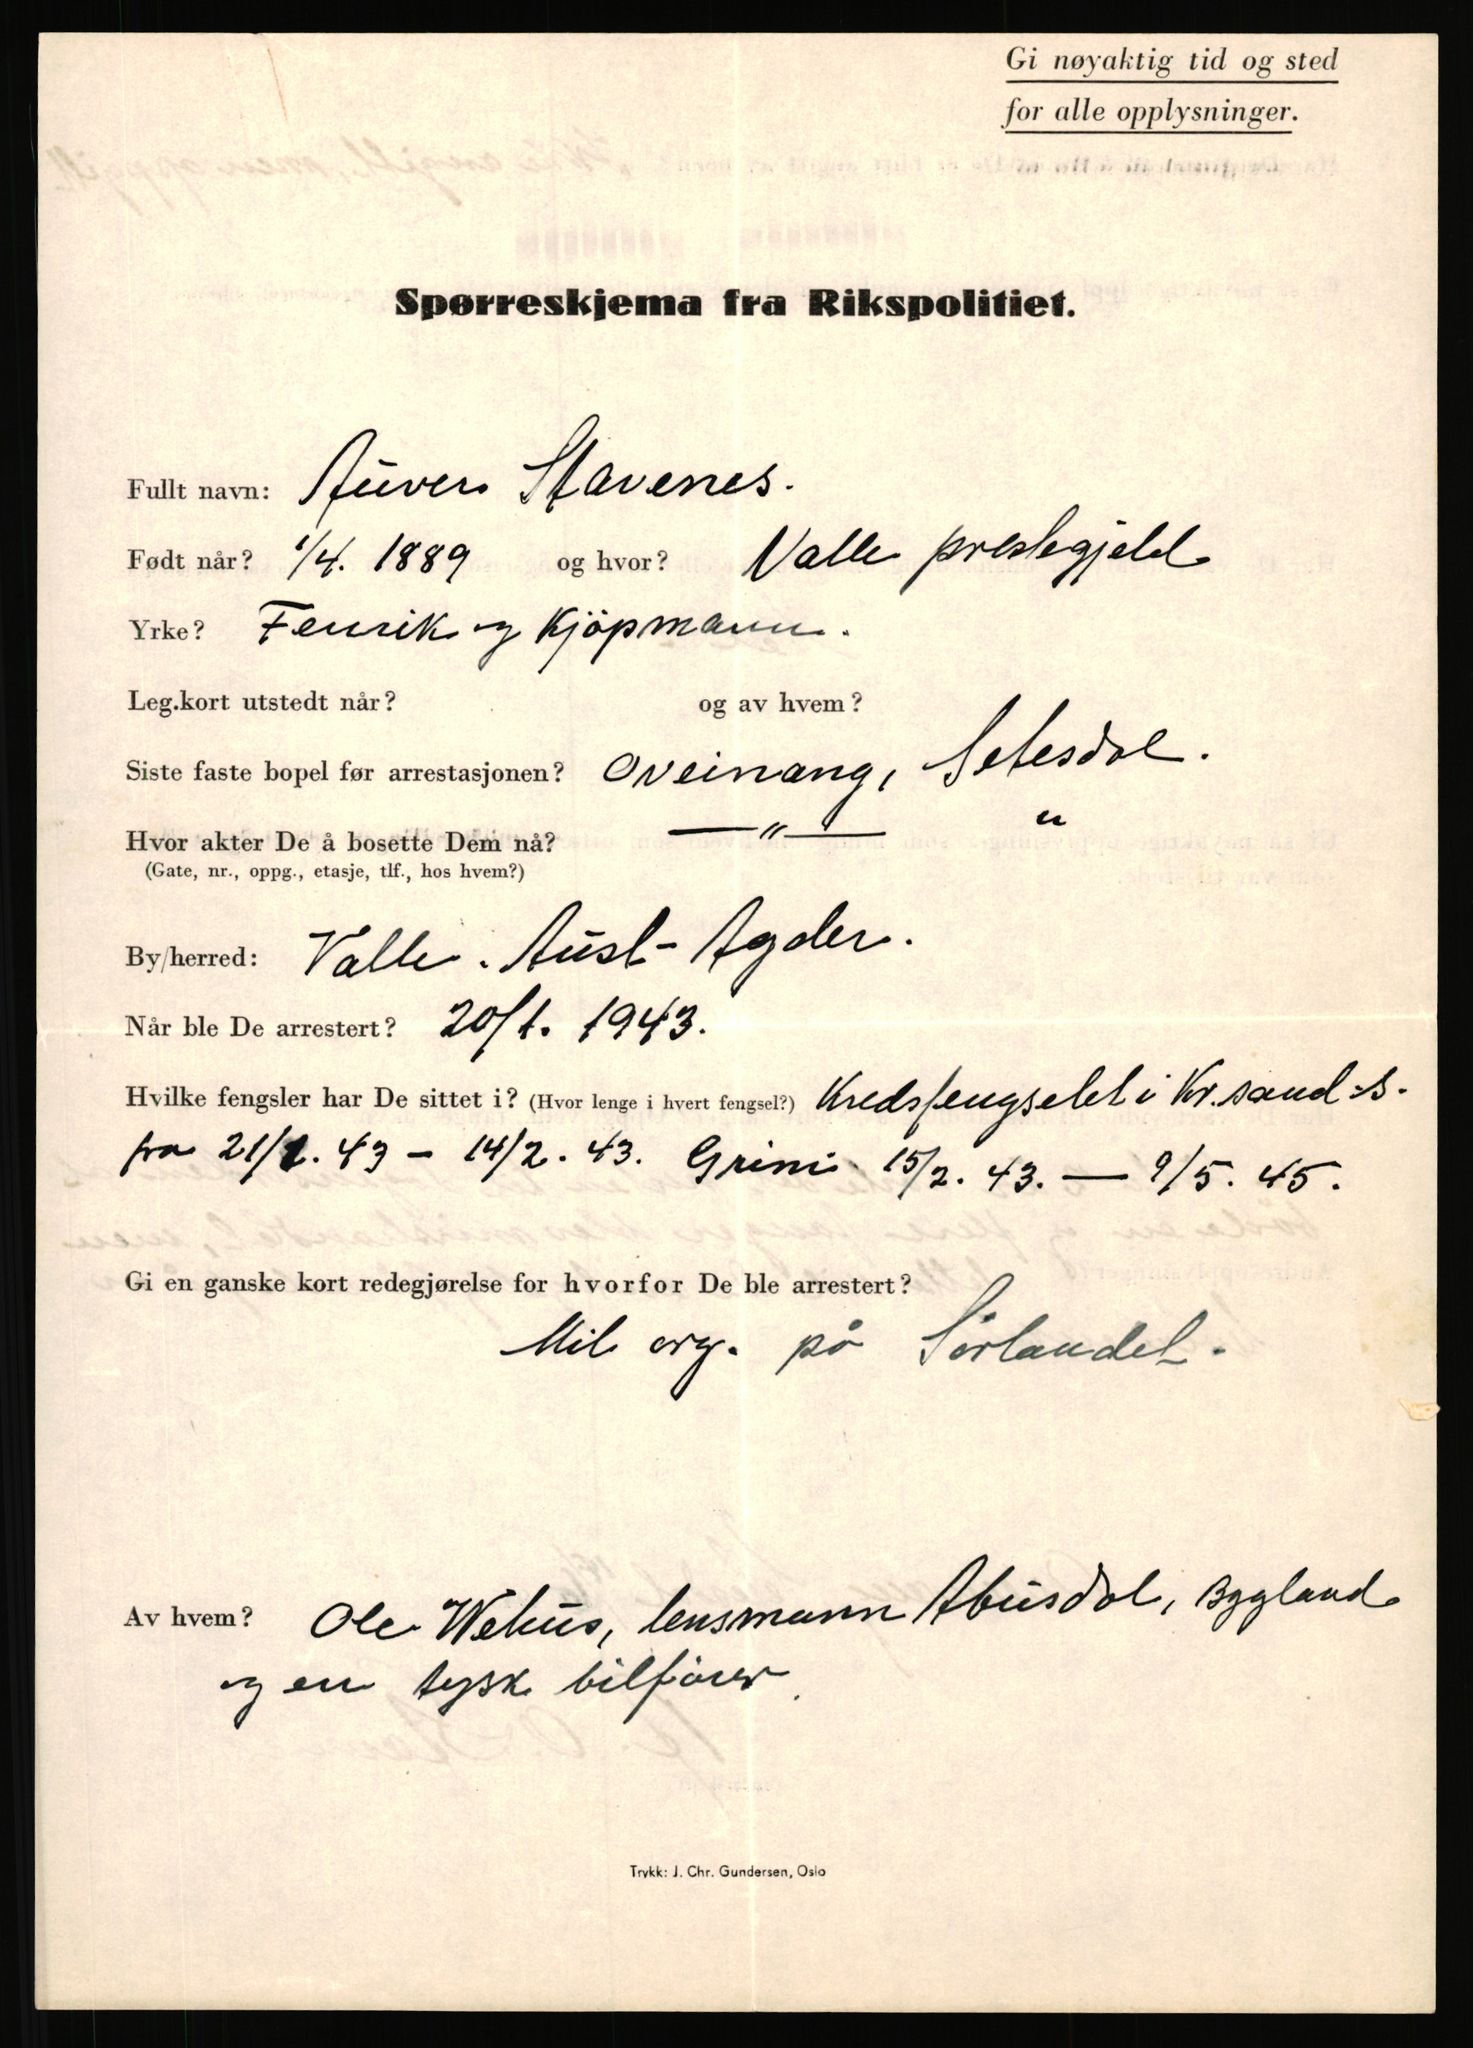 Gi nøyaktig tid og sted
for alle opplysninger.
Spørreskjema fra Rikspolitiet.
Fullt navn: Auver Stavenes.
Født når? 1/4. 1889 og hvor? Valle prestegjeld
Yrke? Fenrik og Kjöpmann.
Leg.kort utstedt når? og av hvem?
Siste faste bopel før arrestasjonen? Oveinang, Setesdal.
Hvor akter De å bosette Dem nå? —"— "
(Gate, nr., oppg., etasje, tlf., hos hvem?)
By/herred: Valle. Aust-Agder.
Når ble De arrestert? 20/1. 1943.
Hvilke fengsler har De sittet i? (Hvor lenge i hvert fengsel?) Kredsfengselet i Kr.sand S.
fra 21/1. 43 – 14/2. 43. Grini 15/2. 43. — 9/5. 45.
Gi en ganske kort redegjørelse for hvorfor De ble arrestert?
Mil org. på Sörlandet.
Av hvem? Ole Wehus, lensmann Abusdal, Bygland
og en tysk bilförer.
Trykk: J. Chr. Gundersen, Oslo